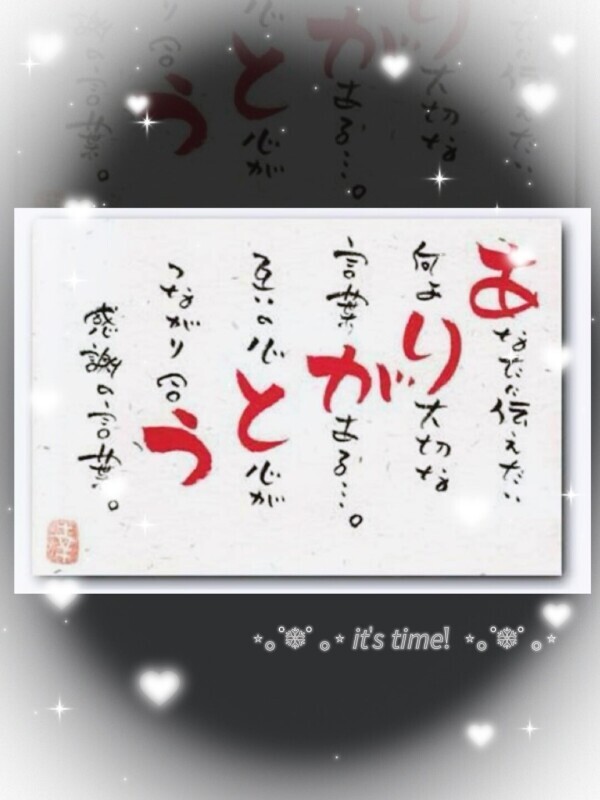 あなたに伝えたい
何より大切な
言葉がある…。
互いの心と心が
つながり合う
感謝の言葉。
⋆｡˚❄˚｡⋆ it's time! ⋆｡˚❄˚｡⋆